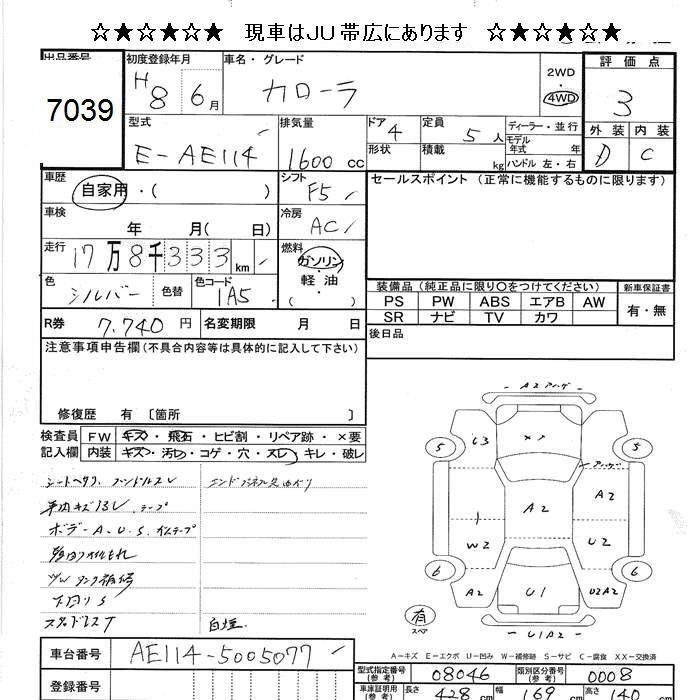 ☆★☆★☆★ 現車はJU帯広にあります ☆★☆★☆★
出品番号 7039
初度登録年月 H8年 6月
車名・グレード カローラ
2WD ・ 4WD
評価点 3
外装 D 内装 C
型式 E-AE114
排気量 1600 cc
ドア 4 形状
定員 5人 積載 kg
ディーラー・並行
モデル年式 年
ハンドル 左・右
車歴 自家用・( )
シフト F5
セールスポイント (正常に機能するものに限ります)
車検 年 月( 日)
冷房 AC
走行 17万8千333 km
燃料 ガソリン ・ 軽油 ( )
色 シルバー 色替
色コード 1A5
装備品(純正品に限り○をつけてください) 新車保証書
PS PW ABS エアB AW 有・無
SR ナビ TV カワ
R券 7,740 円 名変期限 月 日
後日品
注意事項申告欄(不具合内容等は具体的に記入して下さい)
修復歴 有 〔箇所 〕
検査員記入欄
FW キズ・飛石・ヒビ割・リペア跡・×要
内装 キズ・汚レ・コゲ・穴・スレ・キレ・破レ
ボデーA.U.S
下回りS
A2
63
5 5
A2
A2
1
W2
U2
6 6
A2
U1
U2A2
U1A2
有 スペア
A-キズ E-エクボ U-凹み W-補修跡 S-サビ C-腐食 XX-交換済
車台番号 AE114-5005077
型式指定番号(参考) 08046 類別区分番号(参考) 0008
登録番号
車庫証明用(参考) 長さ 428 cm 幅 169 cm 高さ 140 cm